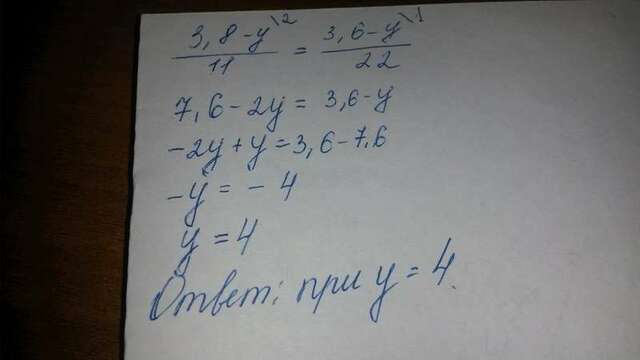 3,8-y\2 / 11 = 3,6-y\1 / 22
7,6-2y=3,6-y
-2y+y=3,6-7,6
-y=-4
y=4
Ответ: при y=4.